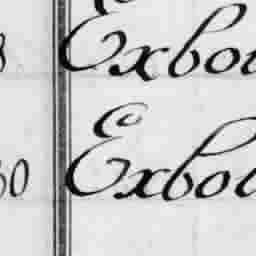 8 Exbou
60 Exbou